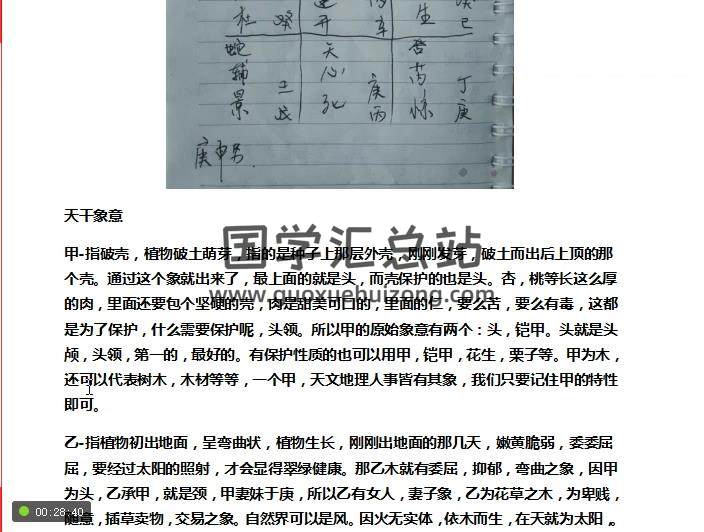 杜 癸 开 生 癸 己
蛇 天 丁
辅 心 庚 芮 庚
景 丙
庚申男.
天干象意
甲-指破壳，植物破土萌芽，指的是种子上那层外壳，刚刚发芽，破土而出后上顶的那
个壳。通过这个象就出来了，最上面的就是头，而壳保护的也是头。杏，桃等长这么厚
的肉，里面还要包个坚硬的壳，肉是甜美可口的，里面的仁，要么苦，要么有毒，这都
是为了保护，什么需要保护呢，头领。所以甲的原始象意有两个：头，铠甲。头就是头
颅，头领，第一的，最好的。有保护性质的也可以用甲，铠甲，花生，栗子等。甲为木，
还可以代表树木，木材等等，一个甲，天文地理人事皆有其象，我们只要记住甲的特性
即可。
乙-指植物初出地面，呈弯曲状，植物生长，刚刚出地面的那几天，嫩黄脆弱，委委屈
屈，要经过太阳的照射，才会显得翠绿健康。那乙木就有委屈，抑郁，弯曲之象，因甲
为头，乙承甲，就是颈，甲妻妹于庚，所以乙有女人，妻子象，乙为花草之木，为卑贱，
随意，插草卖物，交易之象。自然界可以是风。因火无实体，依木而生，在天就为太阳，
国学汇总站
www.guoxuehuizong.com
00:28:40